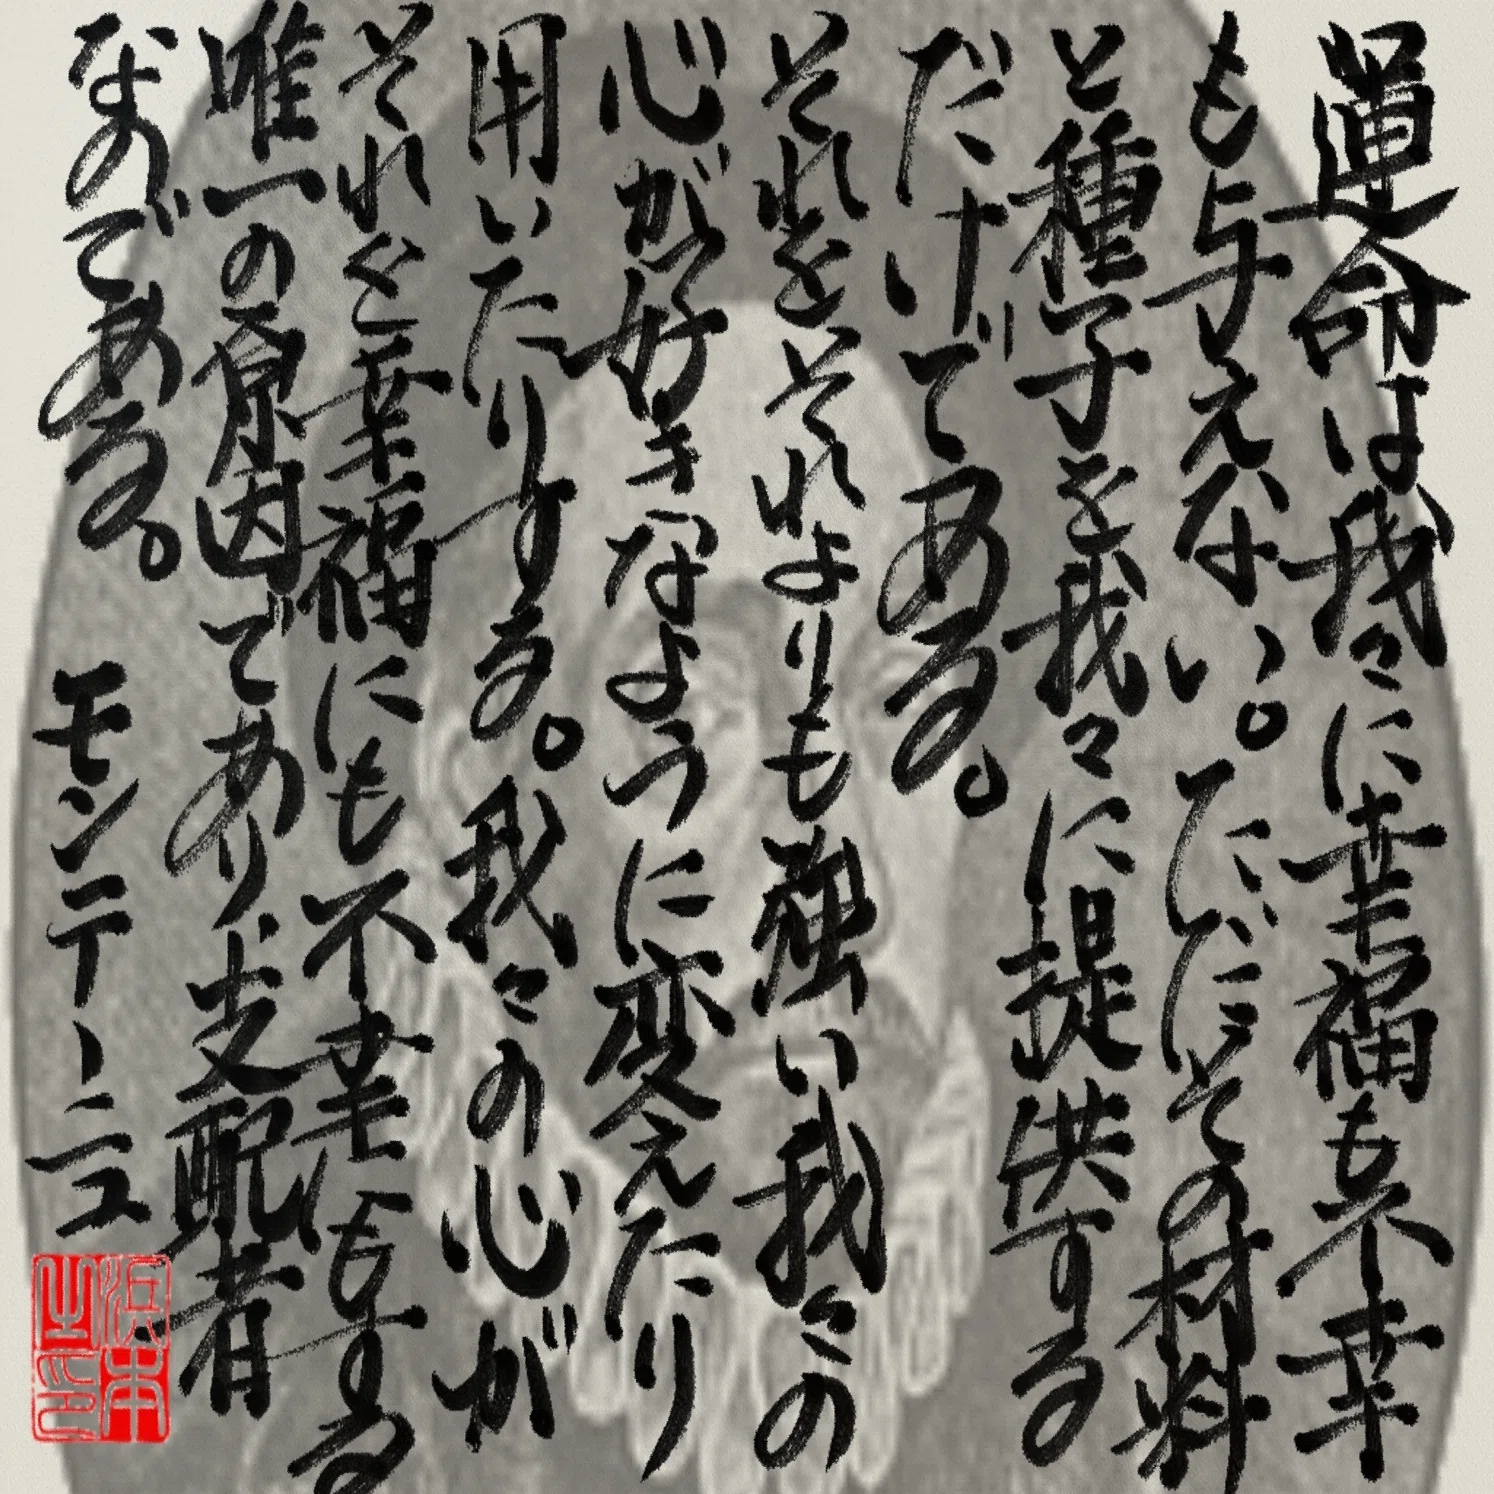 運命は我々に幸福も不幸
も与えない。ただその材料
と種子を我々に提供する
だけである。
それをそれよりも強い我々の
心が好きなように変えたり
用いたりする。我々の心が
それを幸福にも不幸にもする
唯一の原因であり、支配者
なのである。 モンテーニュ
浜本之印